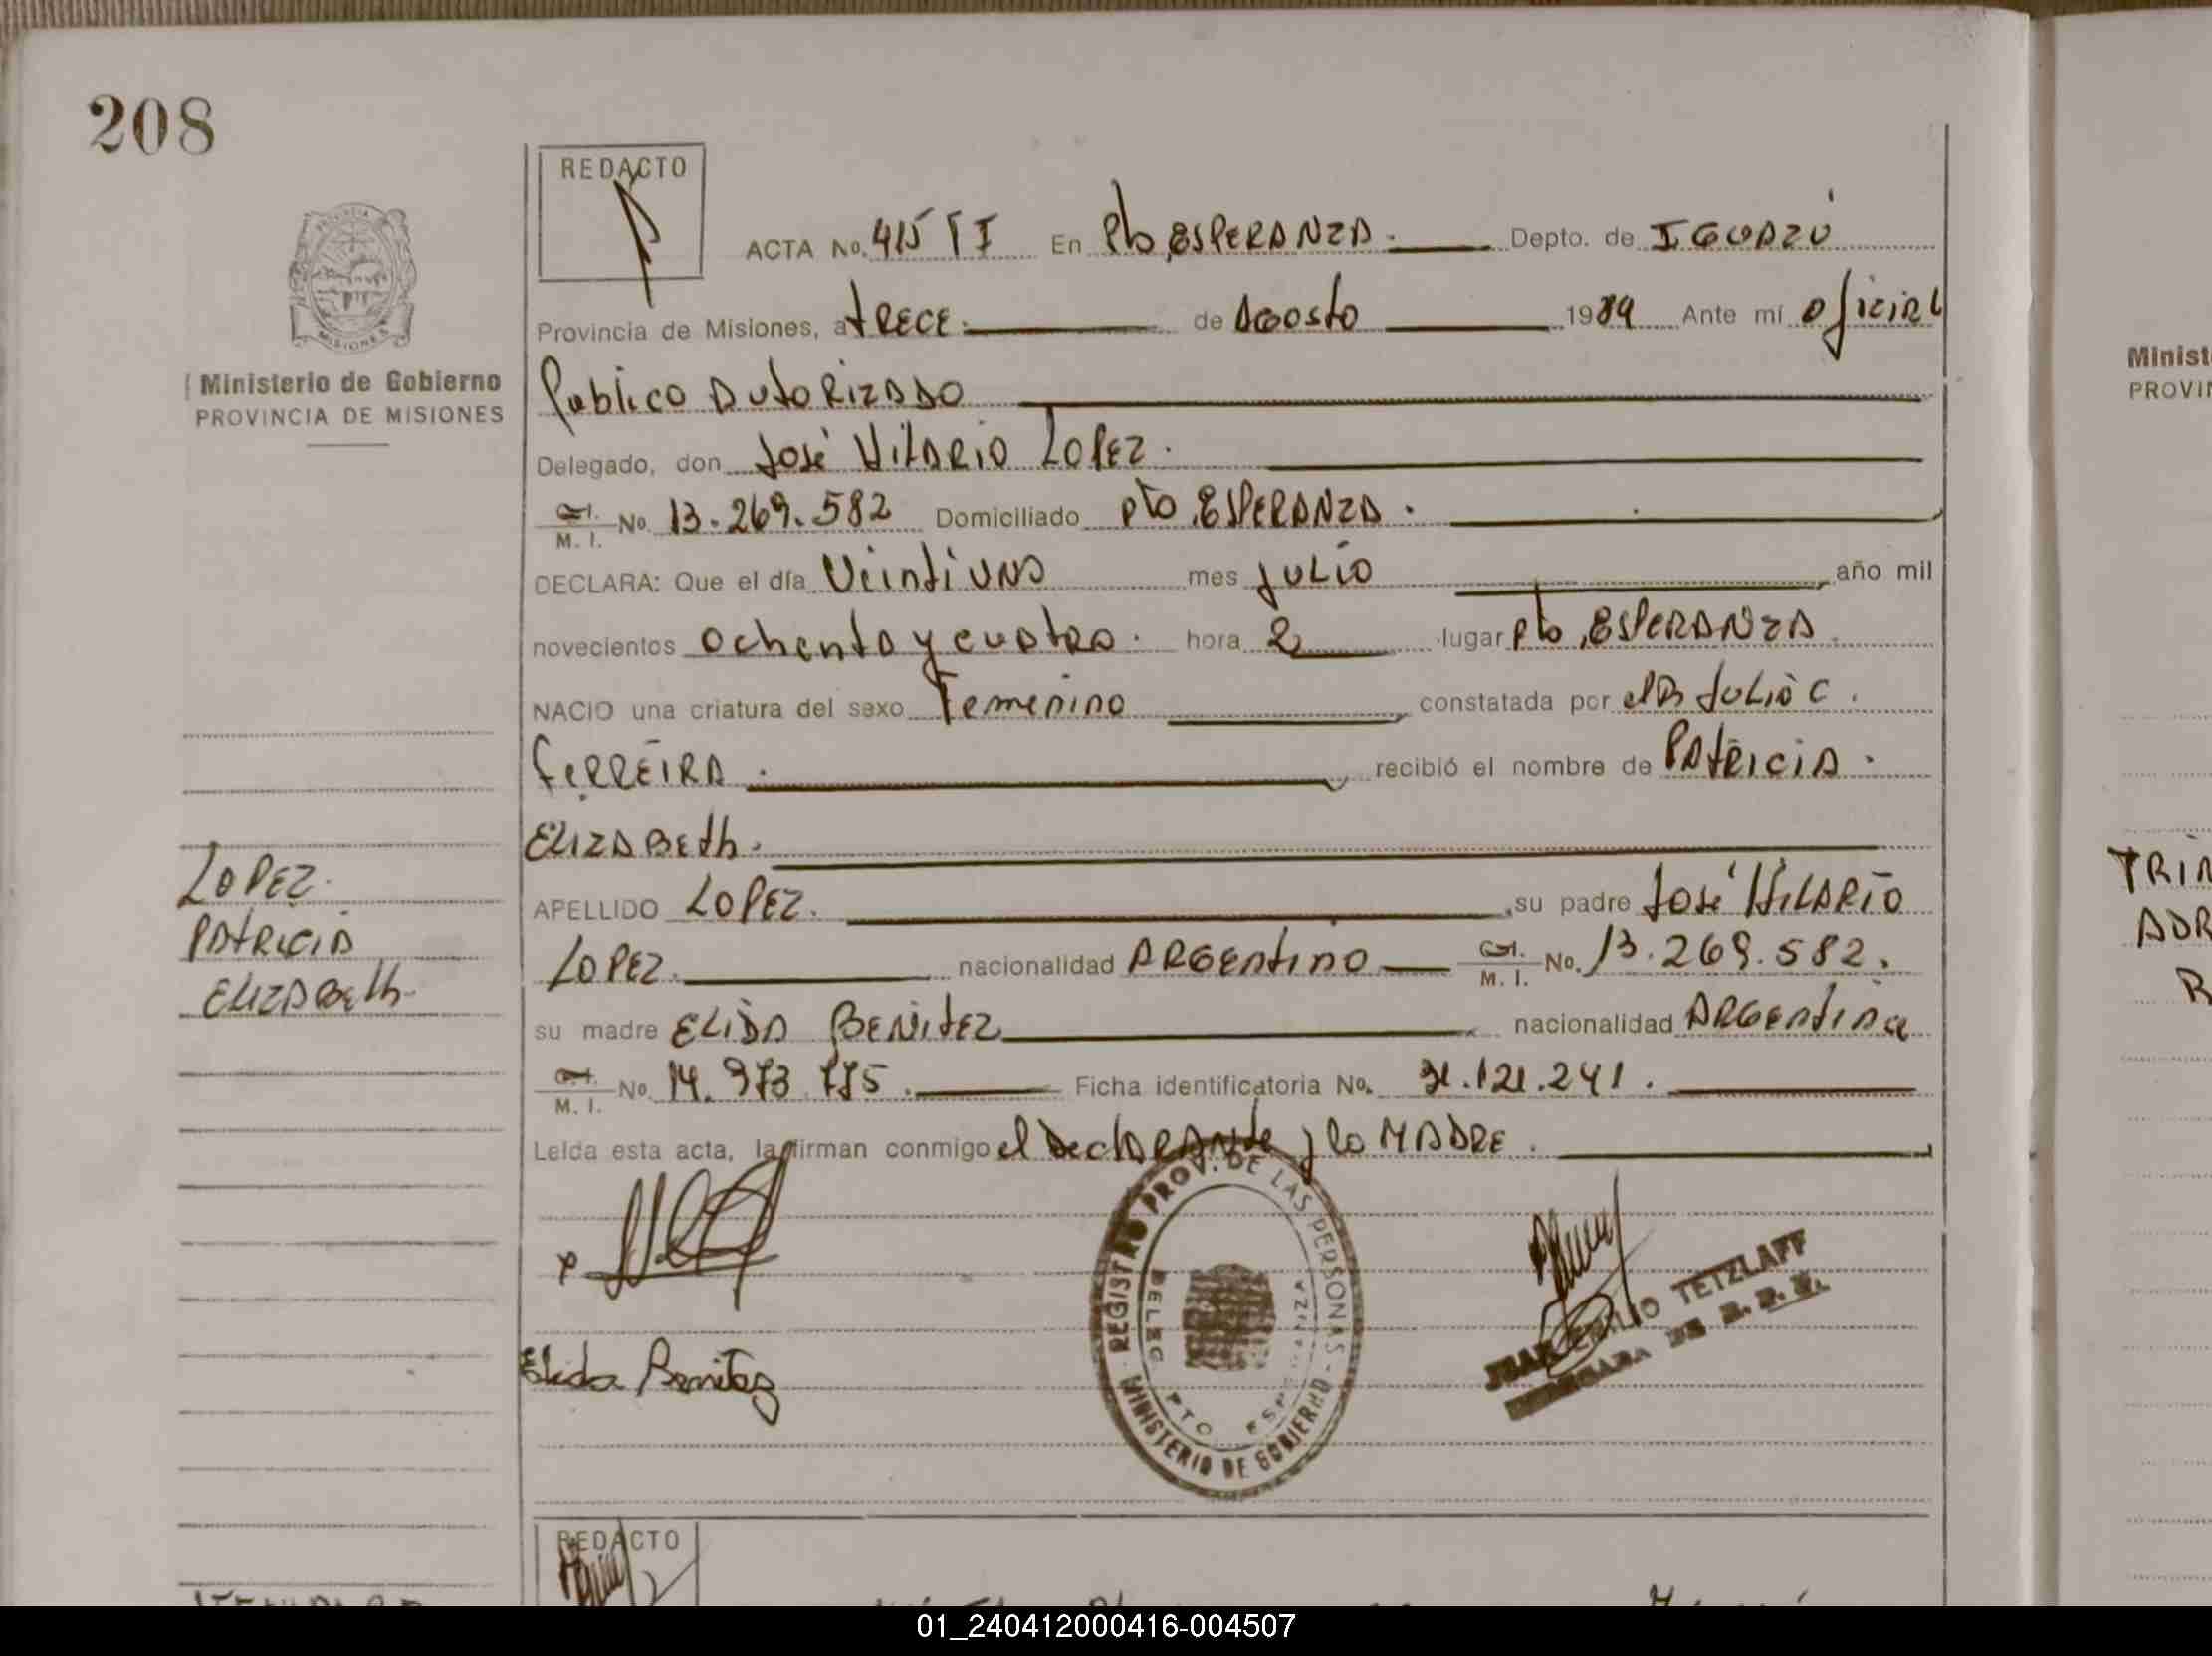 208
REDACTO
ACTA No. 415 TI En Pto. ESPERANZA. Depto. de IGUAZÚ
Provincia de Misiones, a TRECE. de Agosto 1984 Ante mí oficial
Publico Autorizado
Ministerio de Gobierno
PROVINCIA DE MISIONES
Delegado, don José Hilario Lopez.
C.I. M. I. No. 13.269.582 Domiciliado Pto. ESPERANZA.
DECLARA: Que el día Veintiuno mes Julio año mil
novecientos ochenta y cuatro. hora 2 lugar Pto. ESPERANZA.
NACIO una criatura del sexo Femenino constatada por el Dr Julio C.
FERREIRA. recibió el nombre de PATRICIA.
ELIZABEth.
APELLIDO LOPEZ. su padre José Hilario
LOPEZ. nacionalidad ARGENtiNO C.I. M. I. No. 13.269.582.
su madre ELIDA BENITEZ nacionalidad ARGENtiNa
C.I. M. I. No. 14.973.775. Ficha identificatoria No. 31.121.241.
Leída esta acta, la firman conmigo el DeclARANte y la MADRE.
LOPEZ.
PATRICIA
ELIZABEth.
REGISTRO PROV. DE LAS PERSONAS - MINISTERIO DE GOBIERNO
DELEG PTO
TETZLAFF
Elida Benitez
REDACTO
Minist
PROVIN
TRIN
ADR
R
01_240412000416-004507